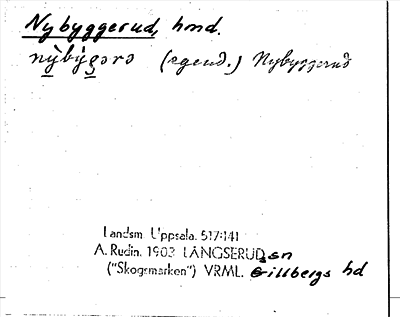 Nybyggerud, hmd.
nỳbýgərə (egend.) Nybyggerud
Landsm. Uppsala. 517:141
A. Rudin. 1903 LÅNGSERUD sn
("Skogsmarken") VRML. Gillbergs hd